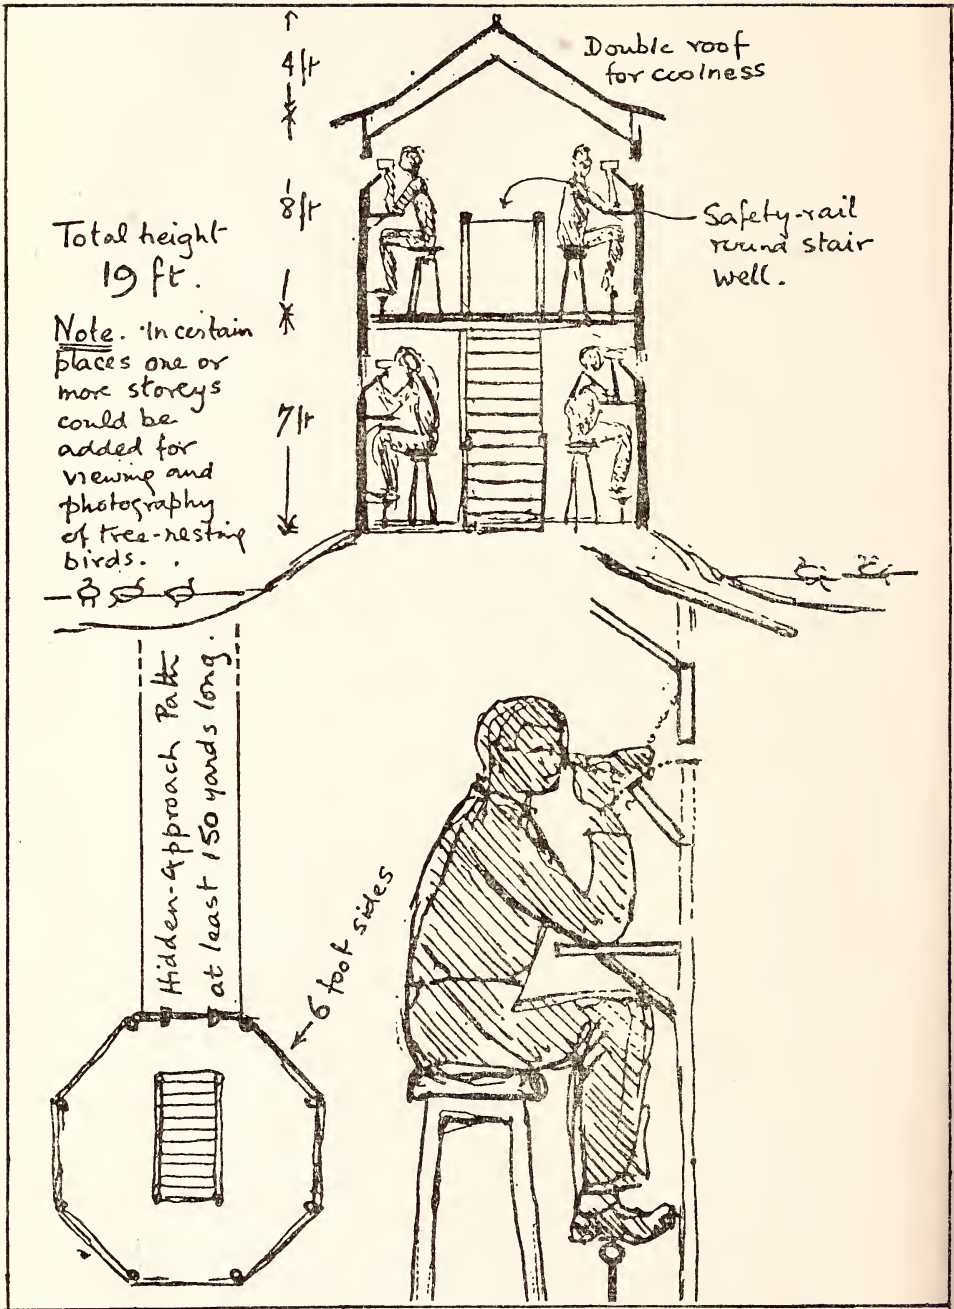 4 ft
Double roof
for coolness
8 ft
Safety-rail
round stair
well.
Total height
19 ft.
Note. In certain
places one or
more storeys
could be
added for
viewing and
photography
of tree-nesting
birds.
7 ft
Hidden-Approach Path
at least 150 yards long.
6 foot sides